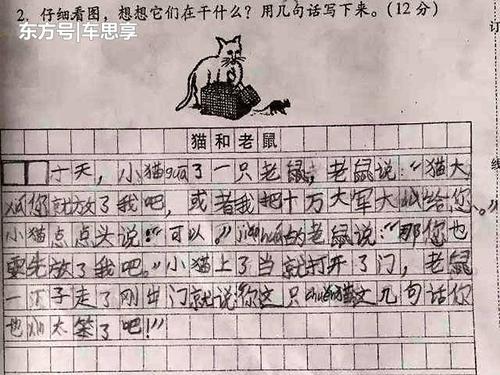 2. 仔细看图，想想它们在干什么？用几句话写下来。（12 分）
东方号|车思享
订
猫和老鼠
十天，小猫 了一只老鼠，老鼠说：“猫大
你就放了我吧，或者我把十万大军大 给您。
线
小猫点点头说：“可以。” 的老鼠说：“那您也
要先放了我吧。”小猫上了当就打开了门，老鼠
一下子走了刚出门就说你这只 猫这几句话你
也 太笨了吧！”